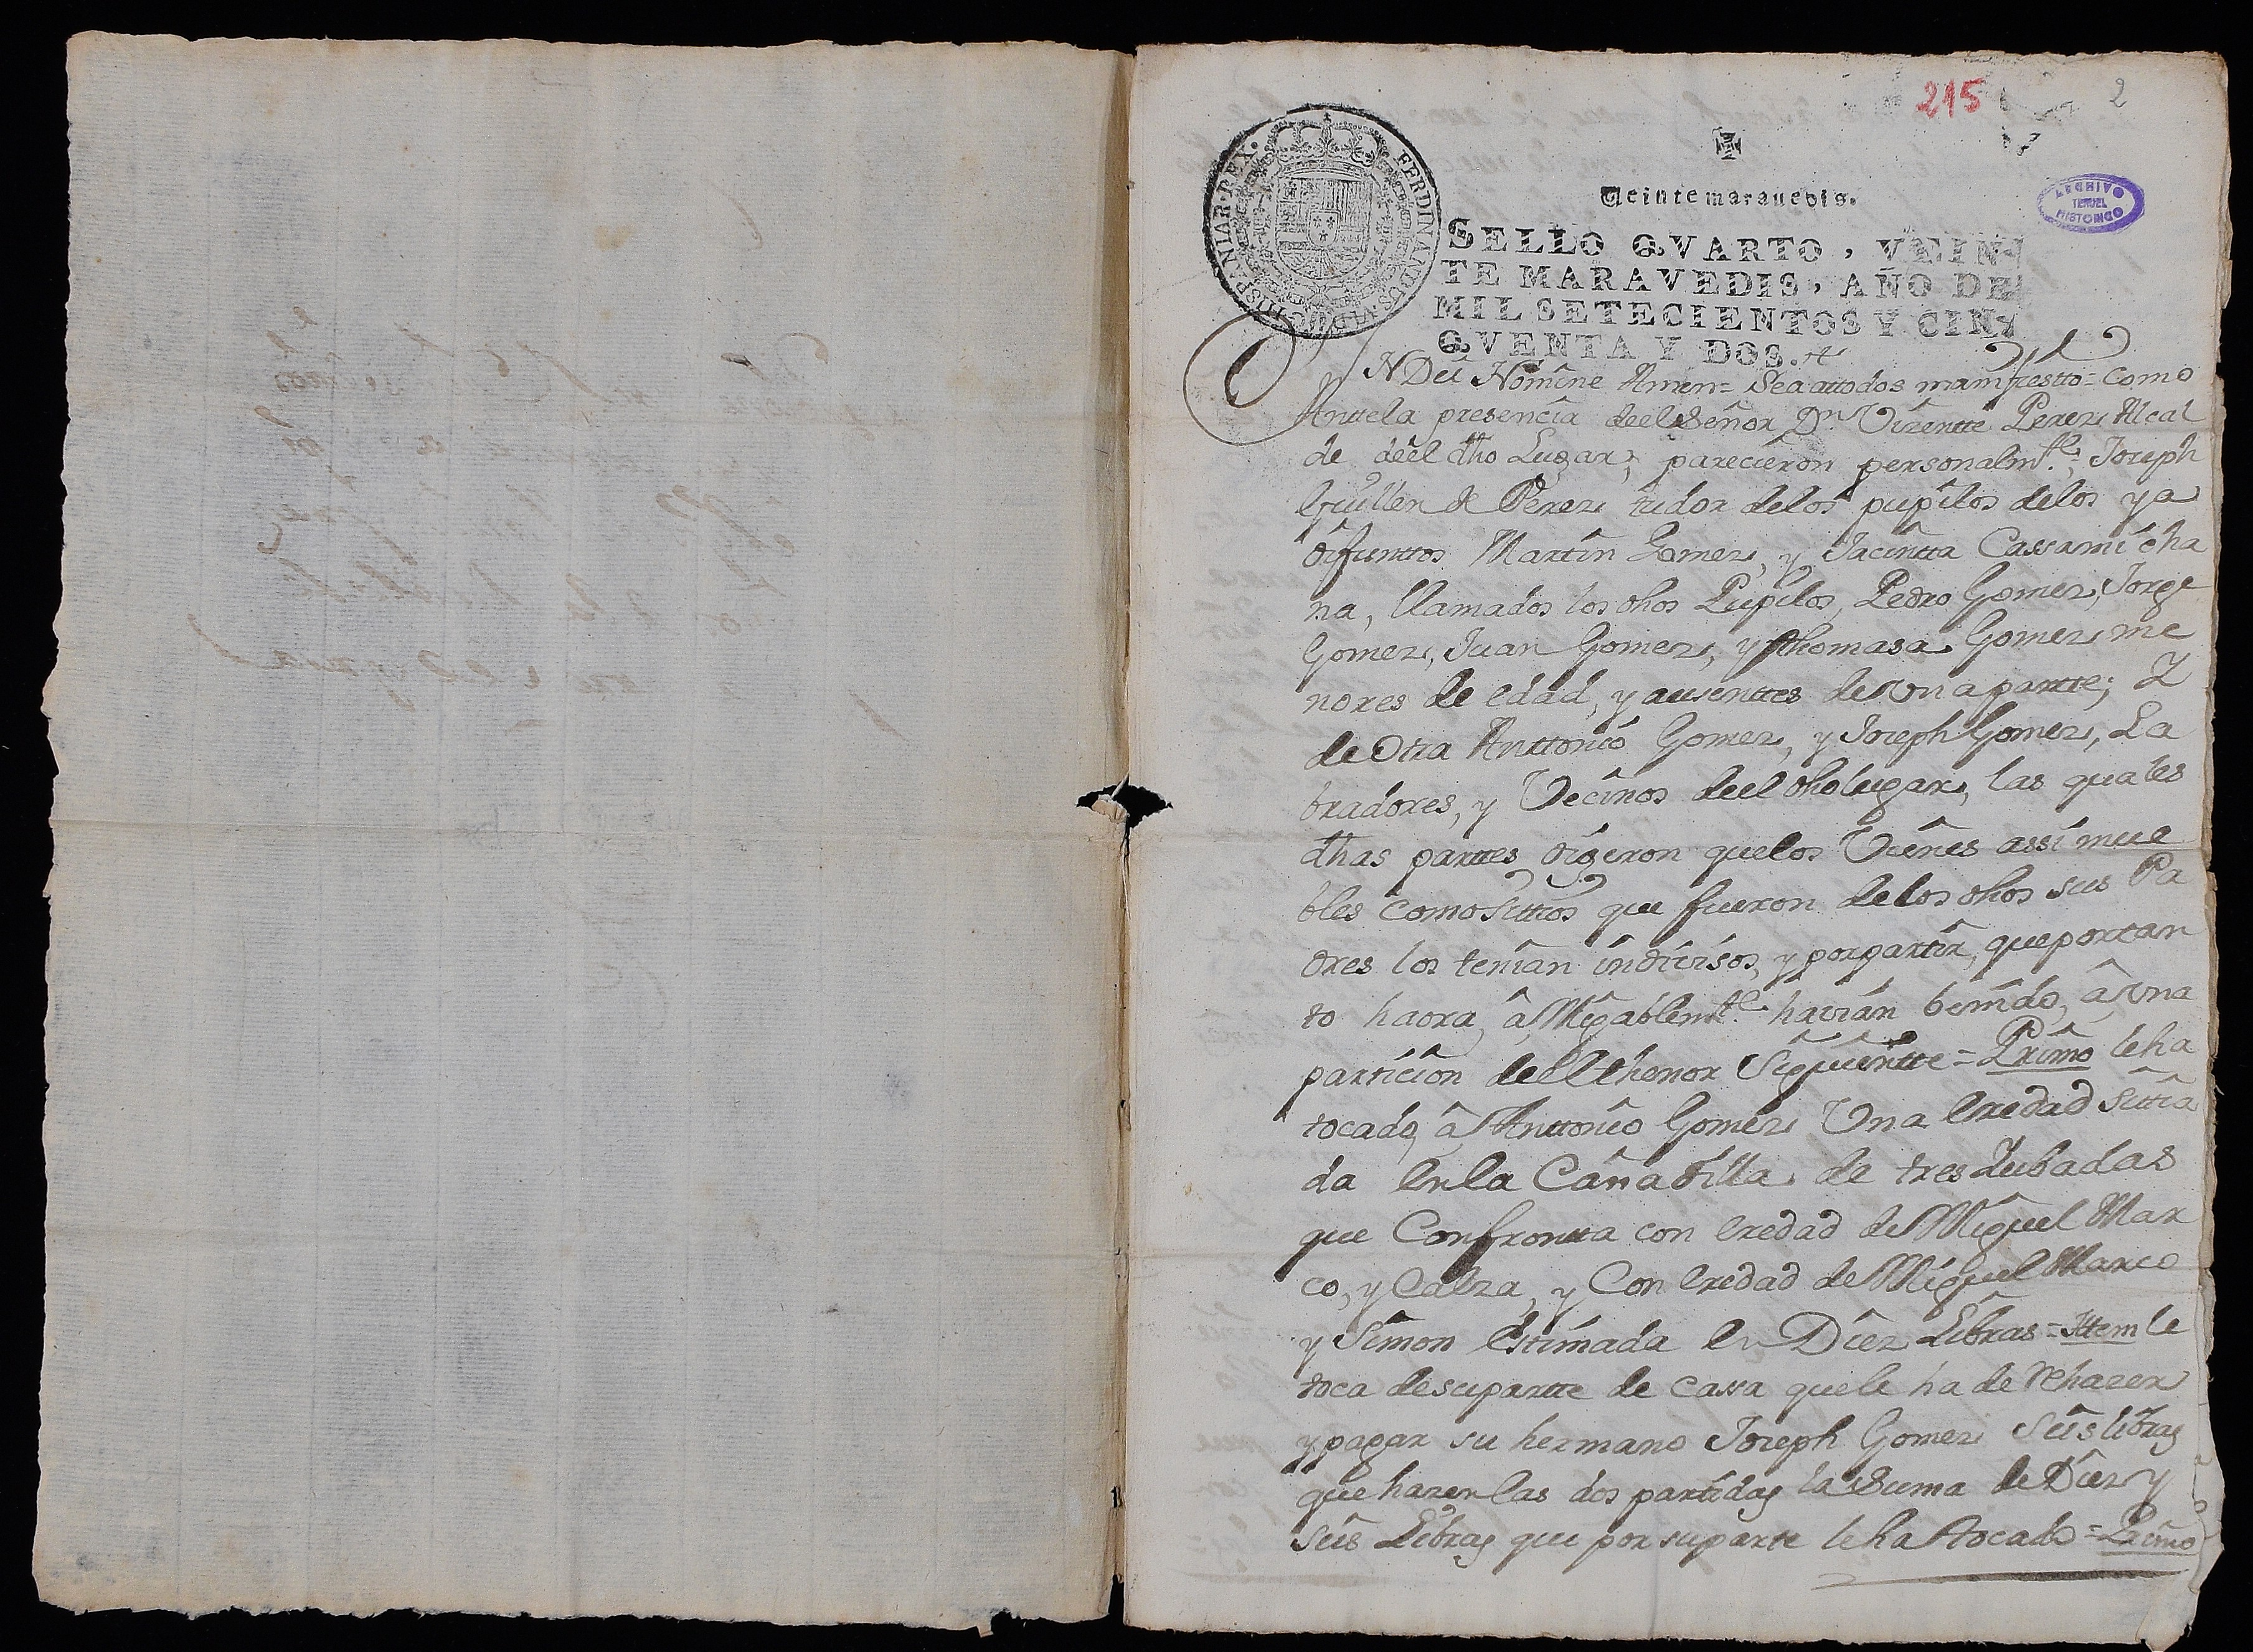 215
2
Veinte maravedis.
ARCHIVO
TERUEL
HISTORICO
FERDINANDUS VI D G HISPANIAR REX
SELLO QVARTO, VEIN-
TE MARAVEDIS, AÑO DE
MIL SETECIENTOS Y CIN-
QVENTA Y DOS.
YN Dei Nomine Amen= Sea attodos manifiestto= como
Antte la presencia deel Señor Dn. Vizentte Perez Alcal
de deel dho Lugar; parecieron personalmte. Joseph
Guillen de Perez tudor delos pupilos delos ya
difunttos Martin Gomez, y Jacintta Cassamicha
na, llamados los dhos Pupilos, Pedro Gomez, Jorge
Gomez, Juan Gomez, y Thomasa Gomez me
nores de edad, y ausenttes de vna partte; Y
de Otra Anttonio Gomez, y Joseph Gomez, La
bradores, y Vecinos deel dho lugar, las quales
dhas parttes digeron quelos Vienes assi mue
bles como sittios que fueron delos dhos sus Pa
dres los tenian indivisos, y por partir, que portan
to haora âmigablemte. havian benido, â vna
particion deel thenor Siguientte= Primo leha
tocado, â Anttonio Gomez Vna eredad sittia
da en la Cañadilla de tres Yubadas
que Confrontta con eredad de Miguel Mar
co, y Calza, y Con eredad de Miguel Marco
y Simon estimada en Diez Libras= Ittem le
toca desu partte de cassa quele ha de rehazer
y pagar su hermano Joseph Gomez Seis libras
que hazen las dos partidas la Suma de Diez y
seis Libras que por su parte leha tocado= Primo